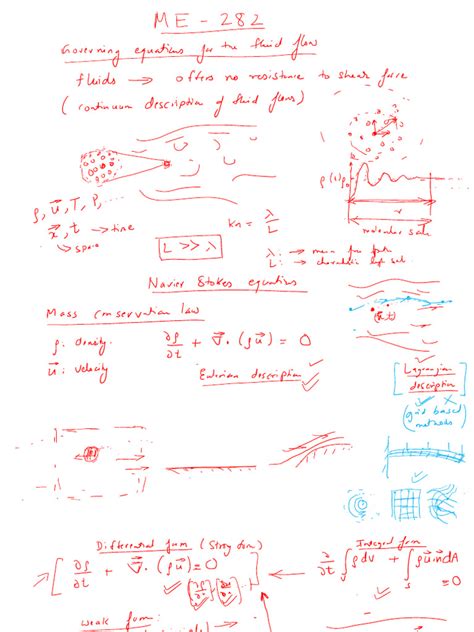 ME - 282
Governing equations for the fluid flow
fluids → offers no resistance to shear force
(continuum description of fluid flows)
ρ, u⃗, T, P,
x⃗, t → time
↳ space
Kn = λ/L
L >> λ
ρ(r) ρ₀
r
molecular scale
λ: → mean free path
L: →
Navier Stokes equations
Mass conservation law
ρ: density.
u⃗: velocity
∂ρ/∂t + ∇⃗·(ρu⃗) = 0
Eulerian description
(x⃗,t)
[Lagrangian description]
(grid based methods)
Differential form (Strong form)
[∂ρ/∂t + ∇⃗·(ρu⃗) = 0]
Integral form
∂/∂t ∫ρdV + ∫ρu⃗·n dA
S
weak form: